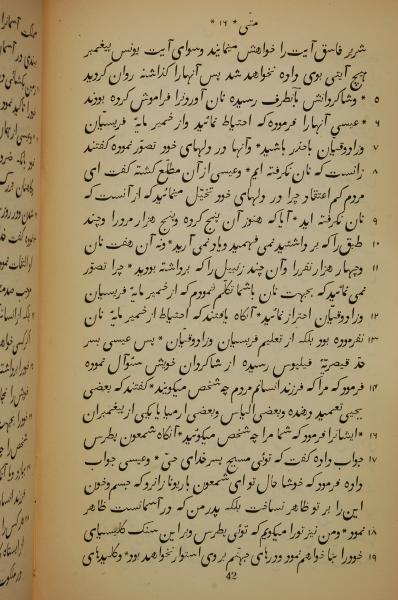 متّی * ۱۶ *
شریر فاسق آیت را خواهش مینمایند و سوای آیت یونس پیغمبر
هیچ آیتی بوی داده نخواهد شد پس آنها را کذاشته روان کردید
۵ * و شاکردانش بآنطرف رسیده نان آوردن را فراموش کرده بودند
۶ * عیسی آنها را فرموده که احتیاط نمائید و از خمیر مایهٔ فریسیان
۷ و زادوقیان باحذر باشید * و آنها در دلهای خود تصوّر نموده کفتند
۸ از انست که نان نکرفته ایم * و عیسی از آن مطّلع کشته کفت ای
مردم کم اعتقاد چرا در دلهای خود تخیّل مینمائید که از آنست که
۹ نان نکرفته اید * آیا که هنوز آن پنج کرده و پنج هزار مرد را و چند
۱۰ طبق را که برداشتید نمی فهمید و یاد نمی آرید * و نه آن هفت نان
۱۱ و چهار هزار نفر را و آن چند زنبیل را که برداشته بودید * چرا تصوّر
نمی نمائید که بجهت نان باشما تکلّم ننمودم که از خمیر مایهٔ فریسیان
۱۲ و زادوقیان احتراز نمائید * آنکاه یافتند که احتیاط از خمیر مایهٔ نان
۱۳ نفرموده بود بلکه از تعلیم فریسیان و زادوقیان * پس عیسی بسر
حدّ قیصریّهٔ فیلپوس رسیده از شاکردان خویش سئوال نموده
۱۴ فرمود که مرا که فرزند انسانم مردم چه شخص میکویند * کفتند که بعضی
یحیی تعمید دهنده و بعضی الیاس و بعضی ارمیا یا یکی از پیغمبران
۱۶ * ایشانرا فرمود که شما مرا چه شخص میکوئید * آنکاه شمعون پطرس
۱۷ جواب داده کفت که توئی مسیح پسر خدای حیّ * و عیسی جواب
داده فرمود که خوشا حال تو ای شمعون باریونا زانرو که جسم و خون
این را بر تو ظاهر نساخت بلکه پدر من که در آسمانست ظاهر
۱۸ نمود * و من نیز ترا میکویم که توئی پطرس و بر این سنک کلیسیای
۱۹ خود را بنا خواهم نمود و درهای جهنّم بر وی استوار نخواهد بود * و کلیدهای
42